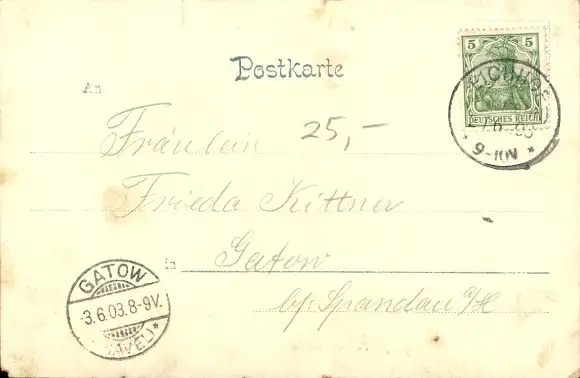 Postkarte
5 5
DEUTSCHES REICH
9-10V
An
Fräulein 25,-
Frieda Kittner
in Gatow
by Spandau a/H
GATOW
3.6.03.8-9V.
(HAVEL)